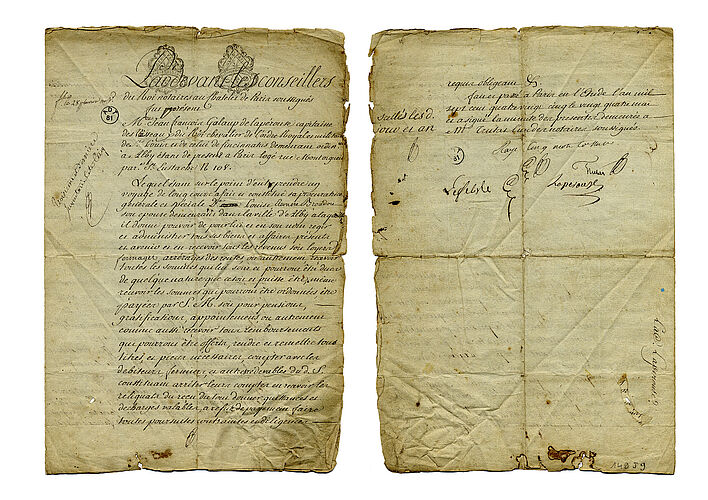 Pardevant Les conseillers
du Roi notaires au Chatelet de Paris soussignés
fut présent
M. Jean françois Galaup de Laperouse capitaine
des Vaisseaux du Roi chevalier de l'ordre Royal et militaire
de St. Louis et de celui de Cincinnatus demeurant ordin.
à Alby étant de present à Paris logé rue Montorgueil
par. St. Eustache N. 108.
Lequel étant sur le point d'entreprendre un
voyage de long cours a fait et constitué sa procuratrice
générale et spéciale De. Louise Eleonore Broudou
son epouse demeurant dans la ville de Alby a laquelle
il donne pouvoir de pour lui et en son nom regir
et administrer tous ses biens et affaires présents
et avenir et en recevoir tous les revenus soit loyers
fermages, arrérages de rentes ou autrement recevoir
toutes les sommes qui lui sont et pourront être dues
de quelque nature que ce soit et puisse être, même
recevoir les sommes qui pourront être ordonnées être
payées par S. M. soit pour pensions,
gratifications, appointements ou autrement
comme aussi recevoir tous remboursements
qui pourront être offerts, rendre et remettre tous
titres et pieces necessaires, compter avec les
debiteurs, fermiers, et autres redevables du d. S.
constituant arrêter leurs comptes en recevoir les
reliquats du reçu du tout donner quittances et
decharges valables, a refus de payement faire
toutes poursuites contraintes et diligences
requis obligeant &
fait et passé à Paris en l'Etude l'an mil
sept cent quatre vingt cinq le vingt quatre mai
et a signé la minute des presentes demeurée à
Me. Notaires soussignés
Raye cinq mots comme nuls
Lefebvre
Laperouse
Lad. Laperouse
14059